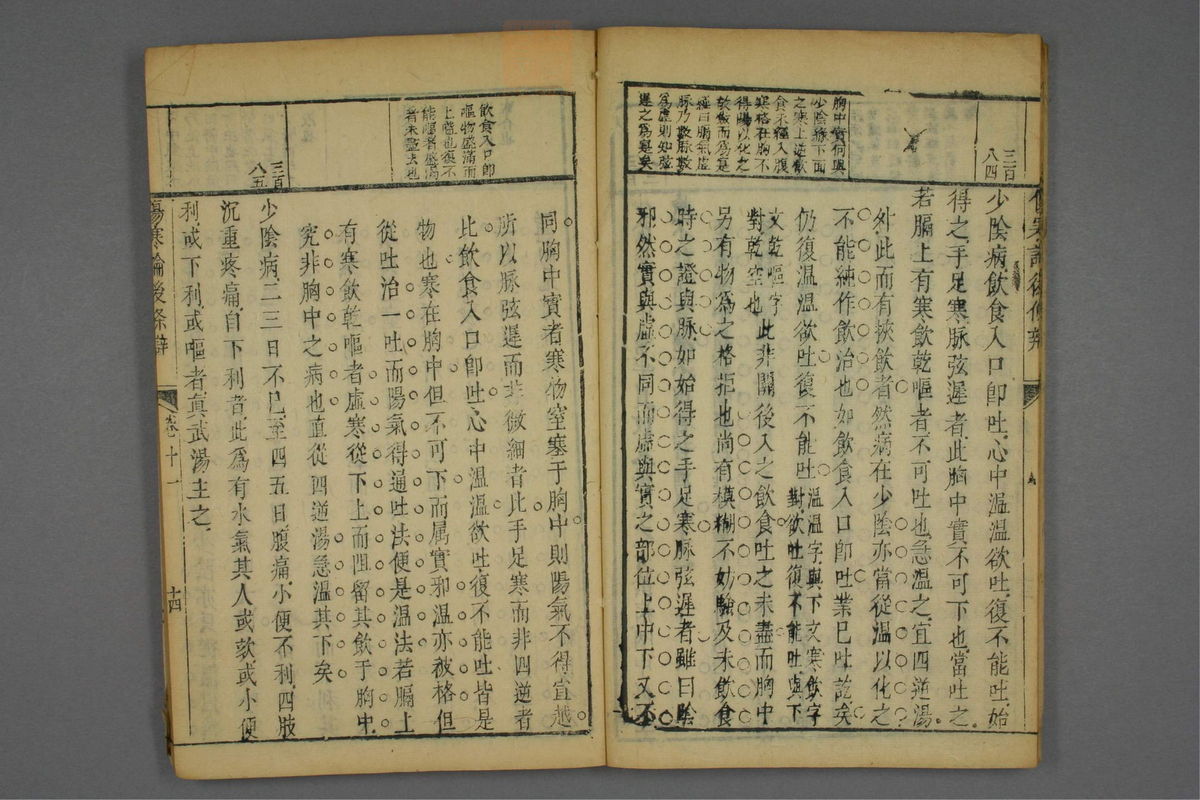 三百
八四
胸中實何與
少陰緣下面
之寒上逆飲
食未經入腹
寒格在胸不
得陽以化之
乾嘔而爲寒
經曰脈氣虛
脈乃數脈數
爲虛則知弦
遲之爲寒矣
少陰病飲食入口卽吐心中溫溫欲吐復不能吐始
得之手足寒脈弦遲者此胸中實不可下也當吐之
若膈上有寒飲乾嘔者不可吐也急溫之宜四逆湯
外此而有挾飲者然病在少陰亦當從溫以化之
不能純作飲治也如飲食入口卽吐業已吐訖矣
仍復溫溫欲吐復不能吐溫溫字與下文寒飲字
對欲吐復不能吐與下
文乾嘔字
對乾空也此非關後入之飲食吐之未盡而胸中
另有物爲之格拒也尚有模糊不妨驗及未飲食
時之證與脈如始得之手足寒脈弦遲者雖曰陰
邪然實與虛不同而虛與實之部位上中下又不
飲食入口卽
嘔物盛滿而
上溢也復不
能嘔者盛滿
者未盡去也
三百
八五
同胸中實者寒物窒塞于胸中則陽氣不得宣越
所以脈弦遲而非微細者比手足寒而非四逆者
比飲食入口卽吐心中溫溫欲吐復不能吐皆是
物也寒在胸中但不可下而属實邪溫亦被格但
從吐治一吐而陽氣得通吐法便是溫法若膈上
有寒飲乾嘔者虛寒從下上而阻留其飲于胸中
究非胸中之病也直從四逆湯急溫其下矣
少陰病二三日不已至四五日腹痛小便不利四肢
沉重疼痛自下利者此爲有水氣其人或欬或小便
利或下利或嘔者眞武湯主之
傷寒論後條辯
卷十一
十四